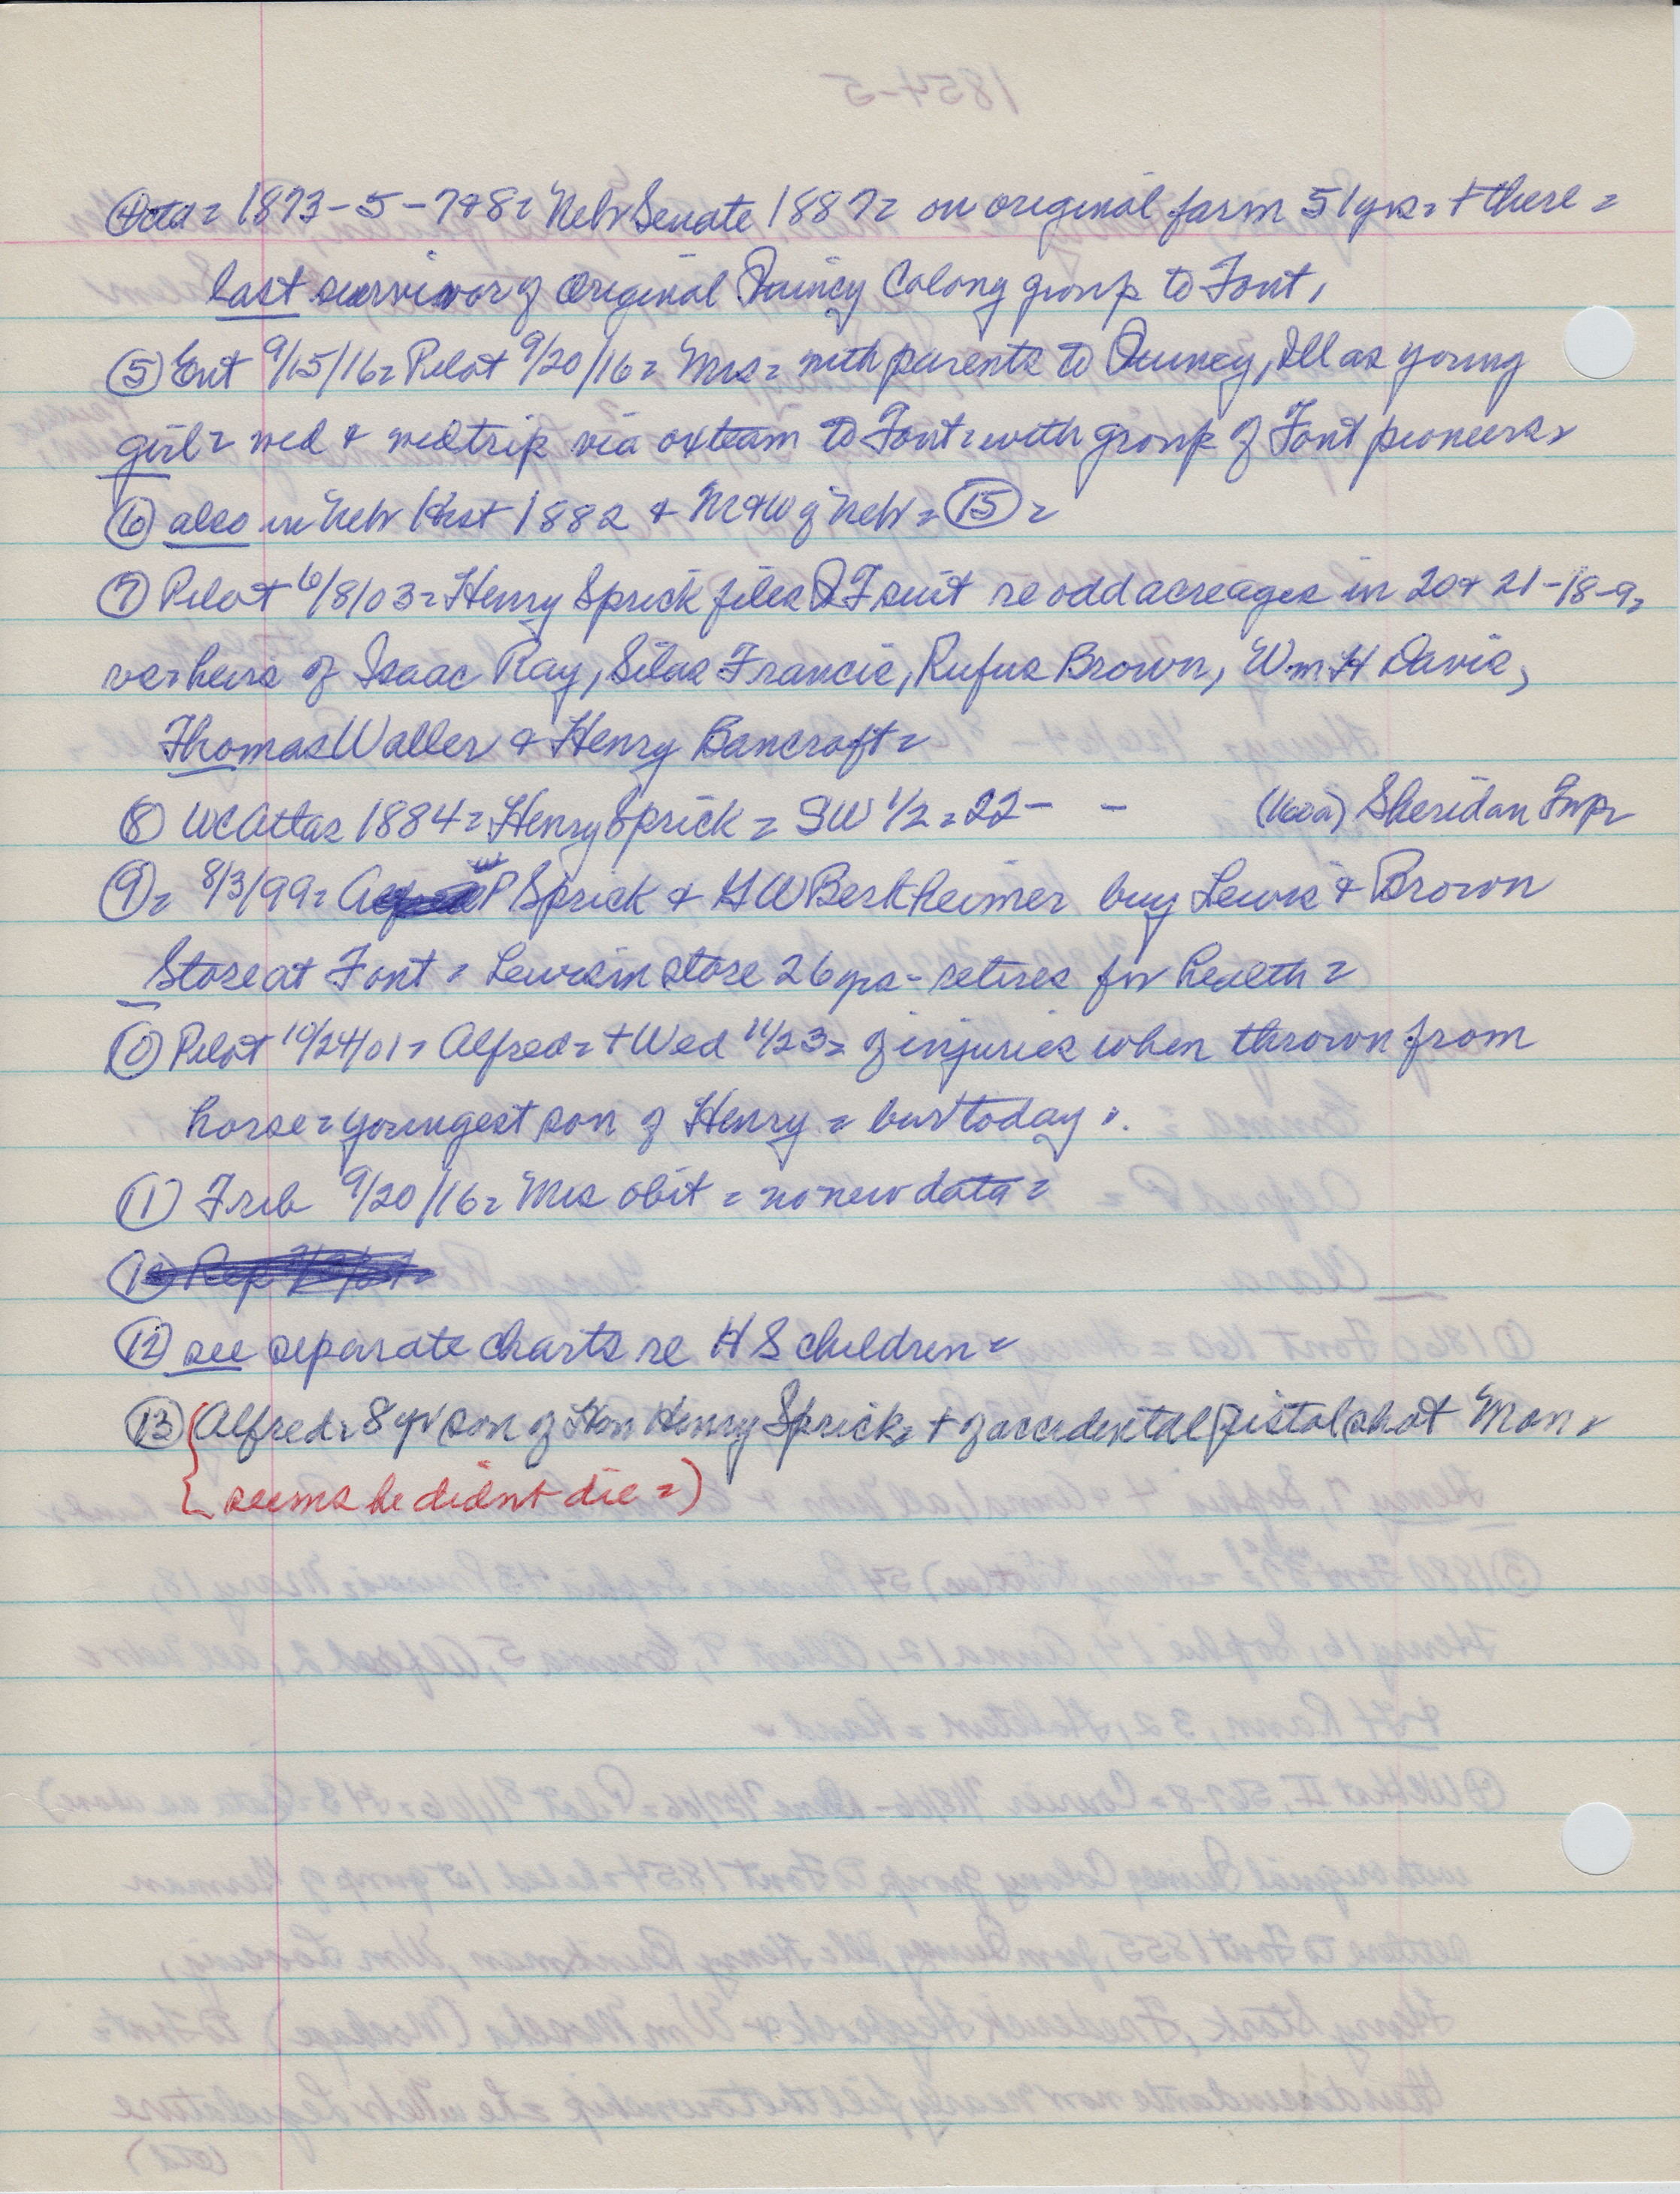 (ctd = 1873-5-7+8 = Nebr Senate 1887 = on original farm 51 yrs = + there =
last survivor of original Quincy Colony group to Font,
⑤ Ent 9/15/16 = Pilot 9/20/16 = Mrs = with parents to Quincy, Ill as young
girl = wed & wed trip via oxteam to Font = with group of Font pioneers =
⑥ also in Nebr Hist 1882 & M&W of Nebr = ⑮ =
⑦ Pilot 6/8/03 = Henry Sprick files QT suit re odd acreages in 20 & 21-18-9 =
vs = heirs of Isaac Ray, Silas Francis, Rufus Brown, Wm H Davis,
Thomas Waller & Henry Bancroft =
⑧ WC Atlas 1884 = Henry Sprick = SW 1/2 = 22 - - Sheridan Twp
⑨ = 8/3/99 = P Sprick & GW Bertheimer buy Lewis & Brown
Store at Font = Lewis in store 26 yrs - retires for health =
⑩ Pilot 10/24/01 = Alfred = + Wed 11/23 = of injuries when thrown from
horse = youngest son of Henry = bur today =.
⑪ Trib 9/20/16 = Mrs obit = no new data =
⑫ see separate charts re HS children =
⑬ {Alfred = 8 yr son of Hon Henry Sprick = + of accidental pistol shot Mon =
{ seems he didnt die =)